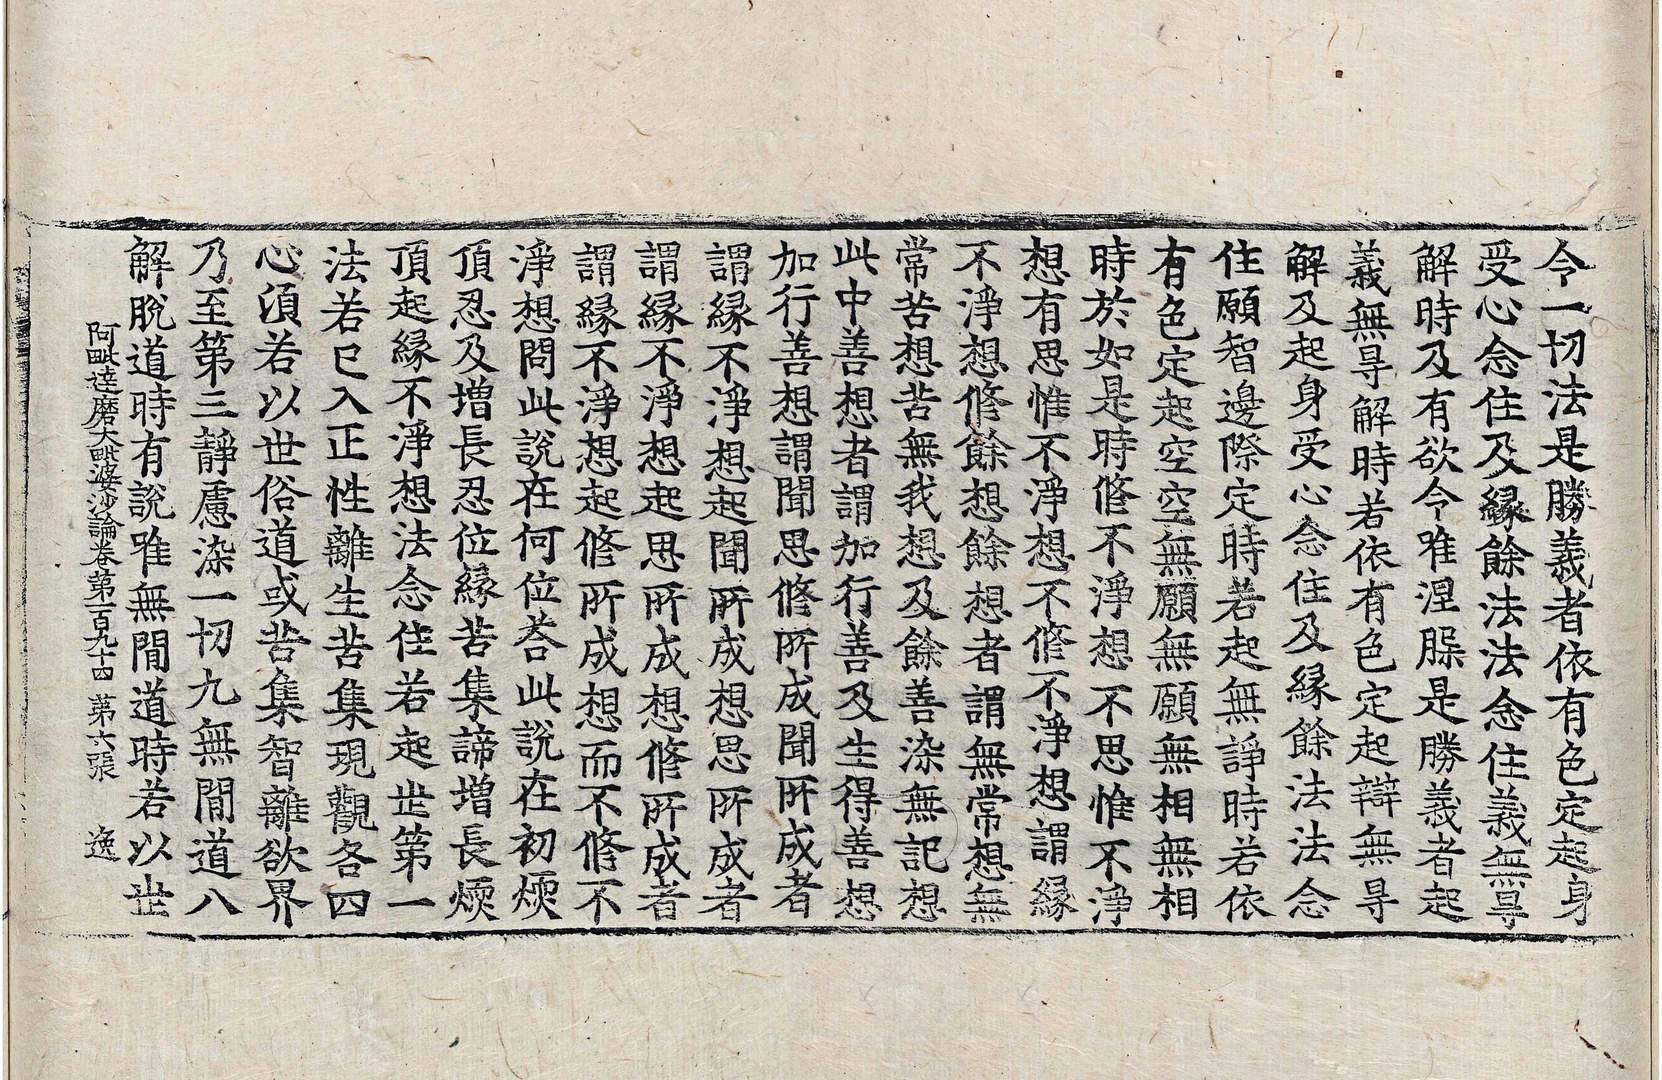 令一切法是勝義者依有色定起身
受心念住及縁餘法法念住義無㝵
解時及有欲令唯涅槃是勝義者起
義無㝵解時若依有色定起辯無㝵
解及起身受心念住及縁餘法法念
住願智邊際定時若起無諍時若依
有色定起空空無願無願無相無相
時於如是時修不淨想不思惟不淨
想有思惟不淨想不修不淨想謂縁
不淨想修餘想餘想者謂無常想無
常苦想苦無我想及餘善染無記想
此中善想者謂加行善及生得善想
加行善想謂聞思修所成聞所成者
謂縁不淨想起聞所成想思所成者
謂縁不淨想起思所成想修所成者
謂縁不淨想起修所成想而不修不
淨想問此說在何位荅此說在初煗
頂忍及增長忍位縁苦集諦增長煗
頂起縁不淨想法念住若起世第一
法若已入正性離生苦集現觀各四
心湏若以世俗道或苦集智離欲界
乃至第三靜慮染一切九無閒道八
解脫道時有說唯無閒道時若以世
阿毗達磨大毗婆沙論卷第一百九十四 第六張 逸